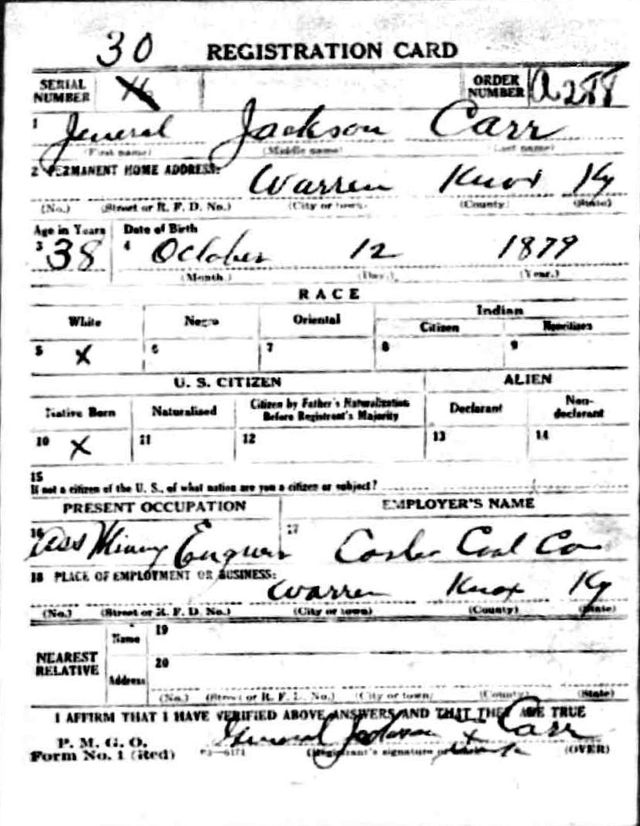 30 REGISTRATION CARD
SERIAL NUMBER ORDER NUMBER A288
1 Jeneral Jackson Carr
(First name) (Middle name) (Last name)
2 PERMANENT HOME ADDRESS: Warren Knox Ky
(No.) (Street or R. F. D. No.) (City or town) (County) (State)
Age in Years Date of Birth
3 38 4 October 12 1879
(Month.) (Day.) (Year.)
RACE
White Negro Oriental Indian
Citizen Noncitizen
5 X 6 7 8 9
U. S. CITIZEN ALIEN
Native Born Naturalized Citizen by Father's Naturalization Before Registrant's Majority Declarant Non-declarant
10 X 11 12 13 14
15
If not a citizen of the U. S., of what nation are you a citizen or subject?
PRESENT OCCUPATION EMPLOYER'S NAME
16 Ass Mining 17 Coal Co
18 PLACE OF EMPLOYMENT OR BUSINESS:
Warren Knox Ky
(No.) (Street or R. F. D. No.) (City or town) (County) (State)
NEAREST RELATIVE
Name 19
Address 20
(No.) (Street or R. F. D. No.) (City or town) (County) (State)
I AFFIRM THAT I HAVE VERIFIED ABOVE ANSWERS AND THAT THEY ARE TRUE
P. M. G. O.
Form No. 1 (Red) Jeneral Jackson X Carr
(Registrant's signature or mark) (OVER)